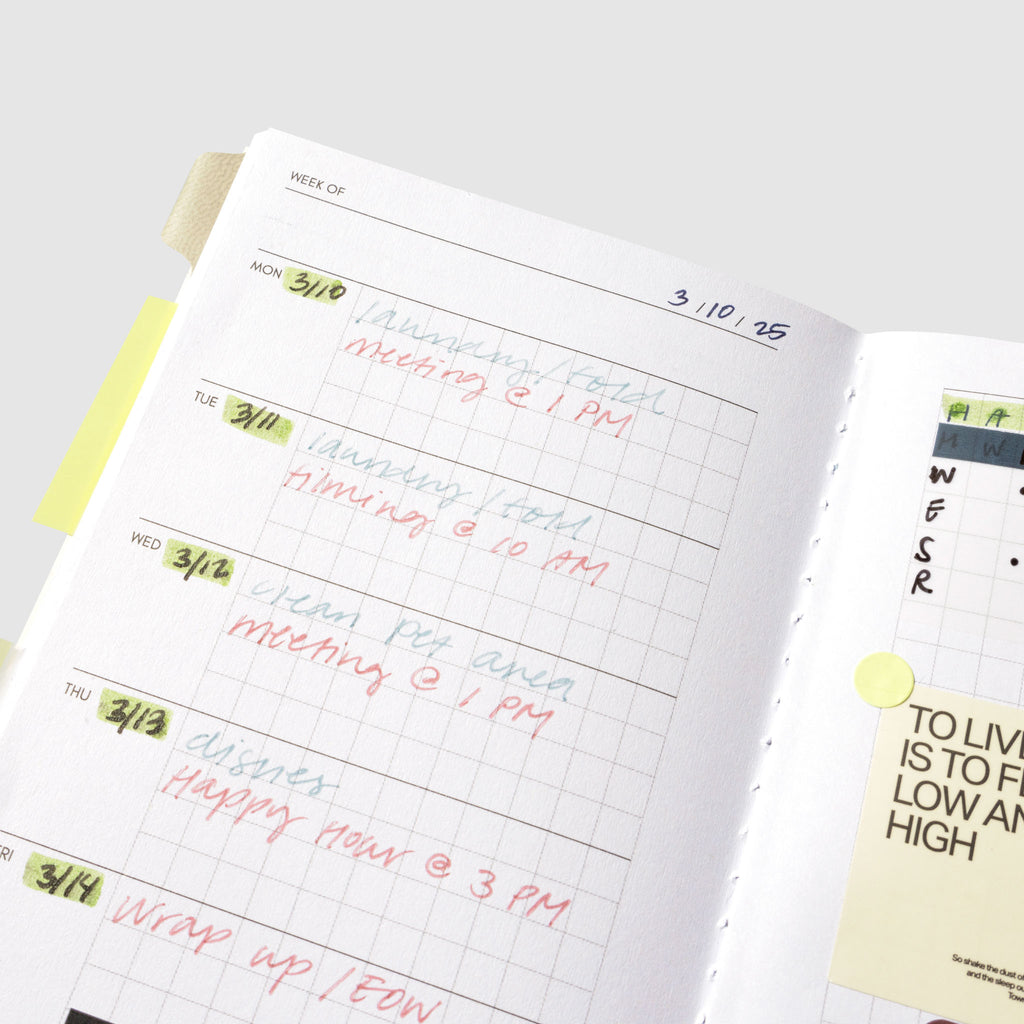 WEEK OF
3/10/25
MON 3/10
laundry/fold
meeting @ 1 PM
TUE 3/11
laundry/fold
filming @ 10 AM
WED 3/12
clean pet area
meeting @ 1 PM
THU 3/13
dishes
Happy Hour @ 3 PM
FRI 3/14
Wrap up/EOW
H A
M W
W
E
S
R
TO LIV
IS TO F
LOW AN
HIGH
So shake the dust o
and the sleep ou
Tow